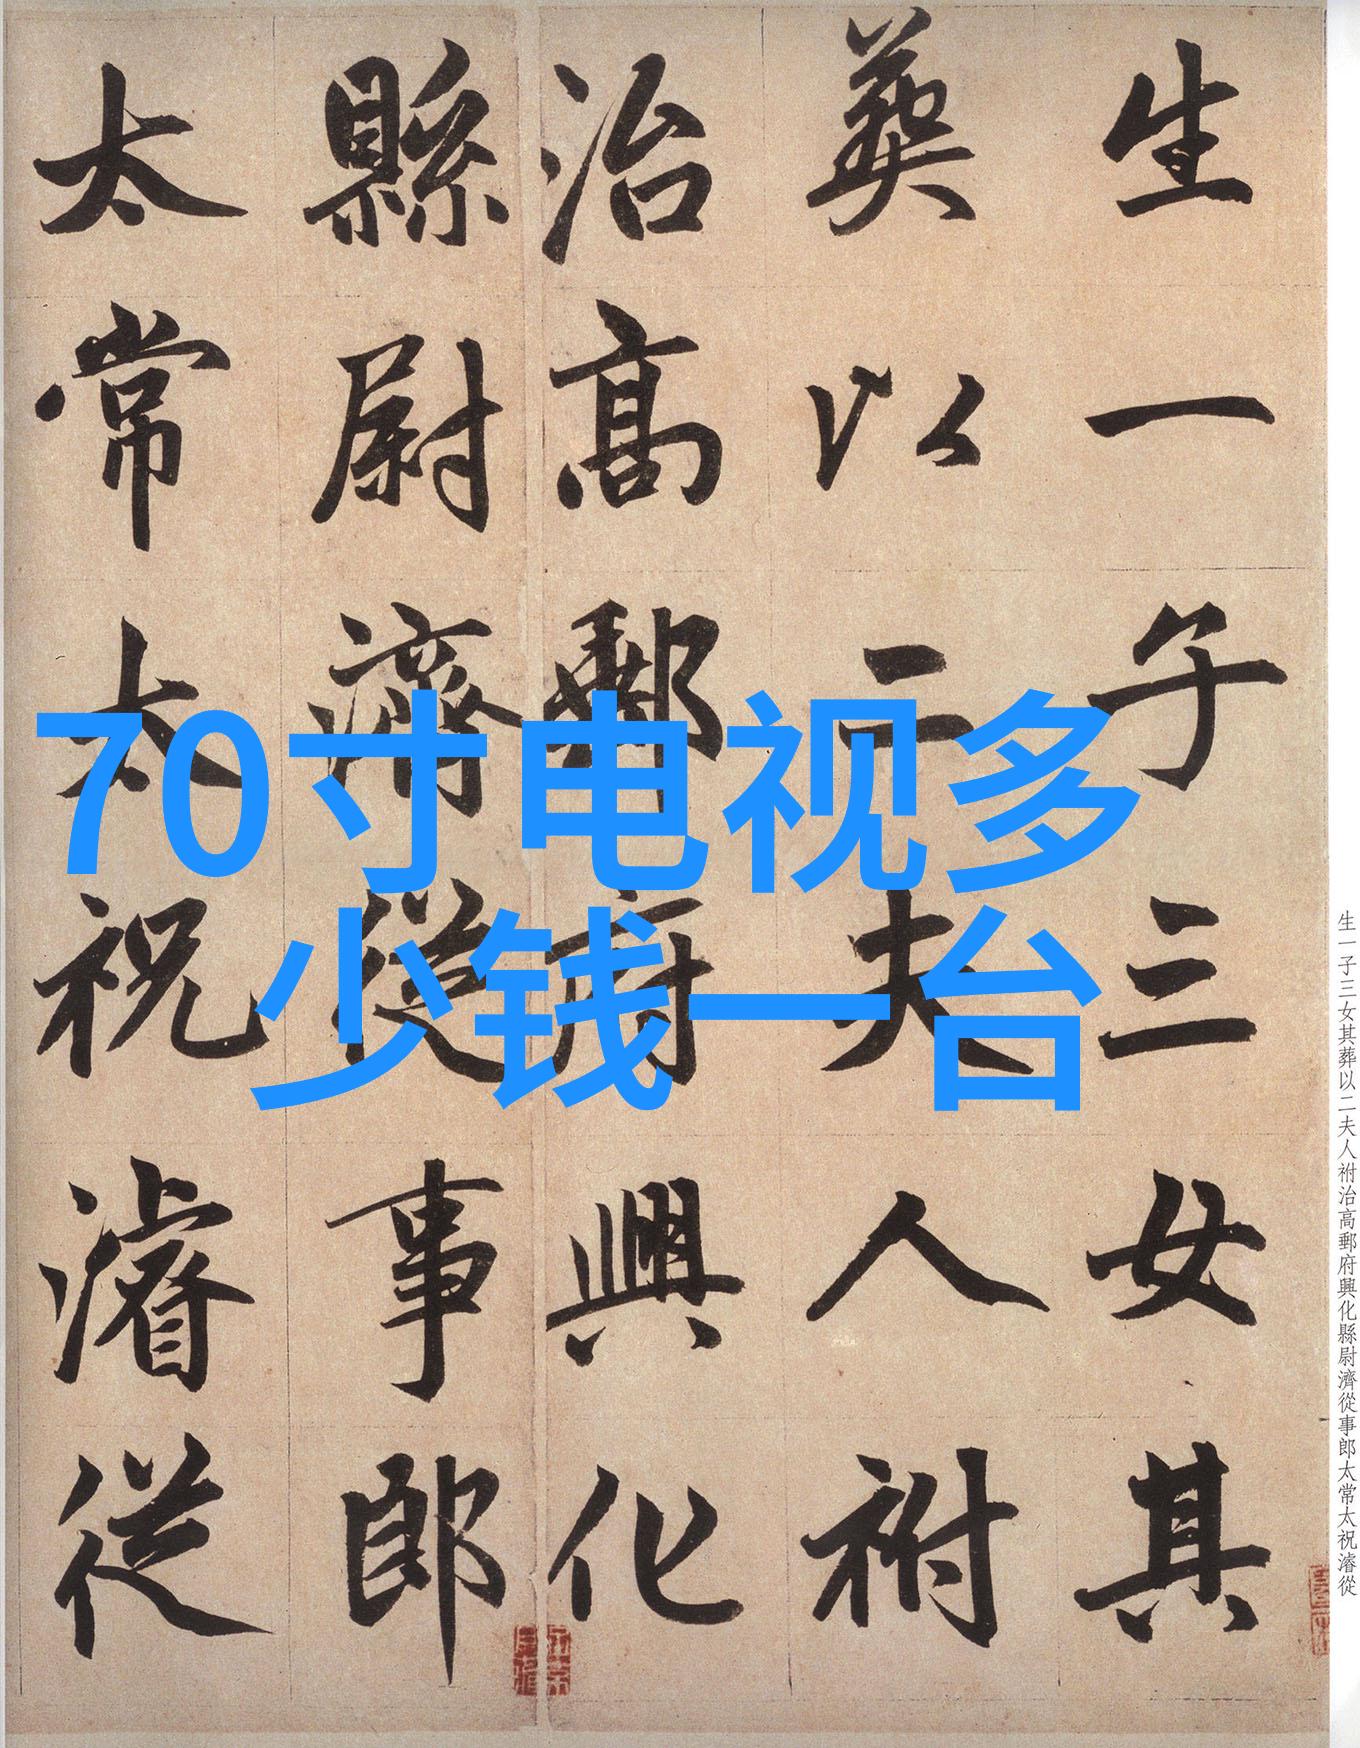 70寸电视多
少钱一台
生一子三女其
葬以二夫人祔
治高郵府興化
縣尉濟從事郎
太常太祝濬從
生一子三女其葬以二夫人祔治高郵府興化縣尉濟從事郎太常太祝濬從